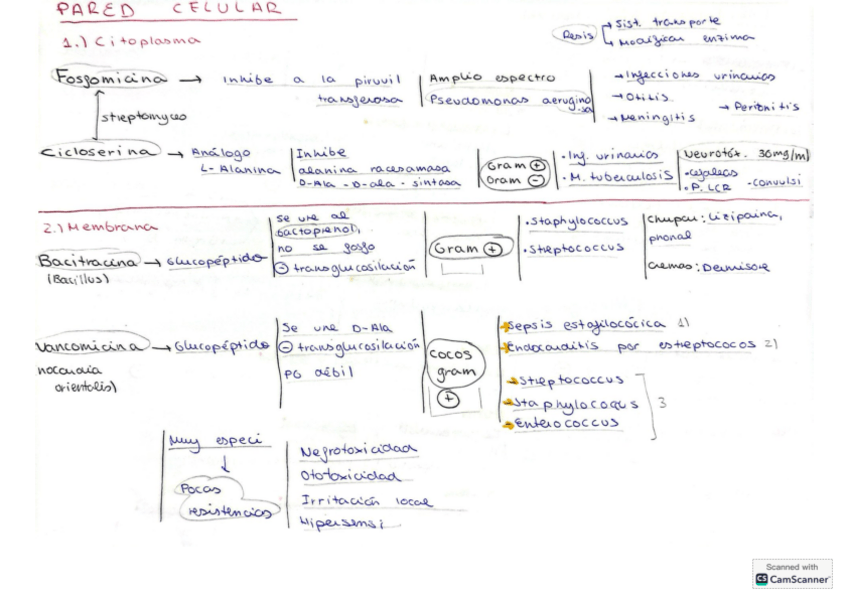 PARED CELULAR
1.) Citoplasma
Resis → Sist. transporte
→ Modifican enzima
Fosfomicina → Inhibe a la piruvil
transferasa
Amplio espectro
Pseudomonas aeruginosa
→ Infecciones urinarias
→ Otitis
→ Meningitis
→ Perionitis
streptomyces
Cicloserina → Análogo
L-Alanina
Inhibe
alanina racesamasa
D-Ala - D-ala - sintasa
Gram +
Gram -
• Inf. urinarias
• M. tuberculosis
Neurotóx. 30mg/ml
• Cefaleas
• P. LCR - convulsi
2.) Membrana
Bacitracina → Glucopéptido
(Bacillus)
Se une al
bactoprenol,
no se fosfo
- transglucosilación
Gram +
• Staphylococcus
• Streptococcus
Chupar: Lizipaina,
phonal
Cremas: Dermisone
Vancomicina → Glucopéptido
nocardia
orientalis)
Se une D-Ala
- transglucosilación
PG débil
cocos
gram
+
Sepsis estafilocócica 1)
Endocarditis por estreptococos 2)
Streptococcus
Staphylocoqus
Enterococcus
3
Muy especi
↓
Pocas
resistencias
Nefrotoxicidad
Ototoxicidad
Irritación local
Hipersensi
Scanned with
CS CamScanner